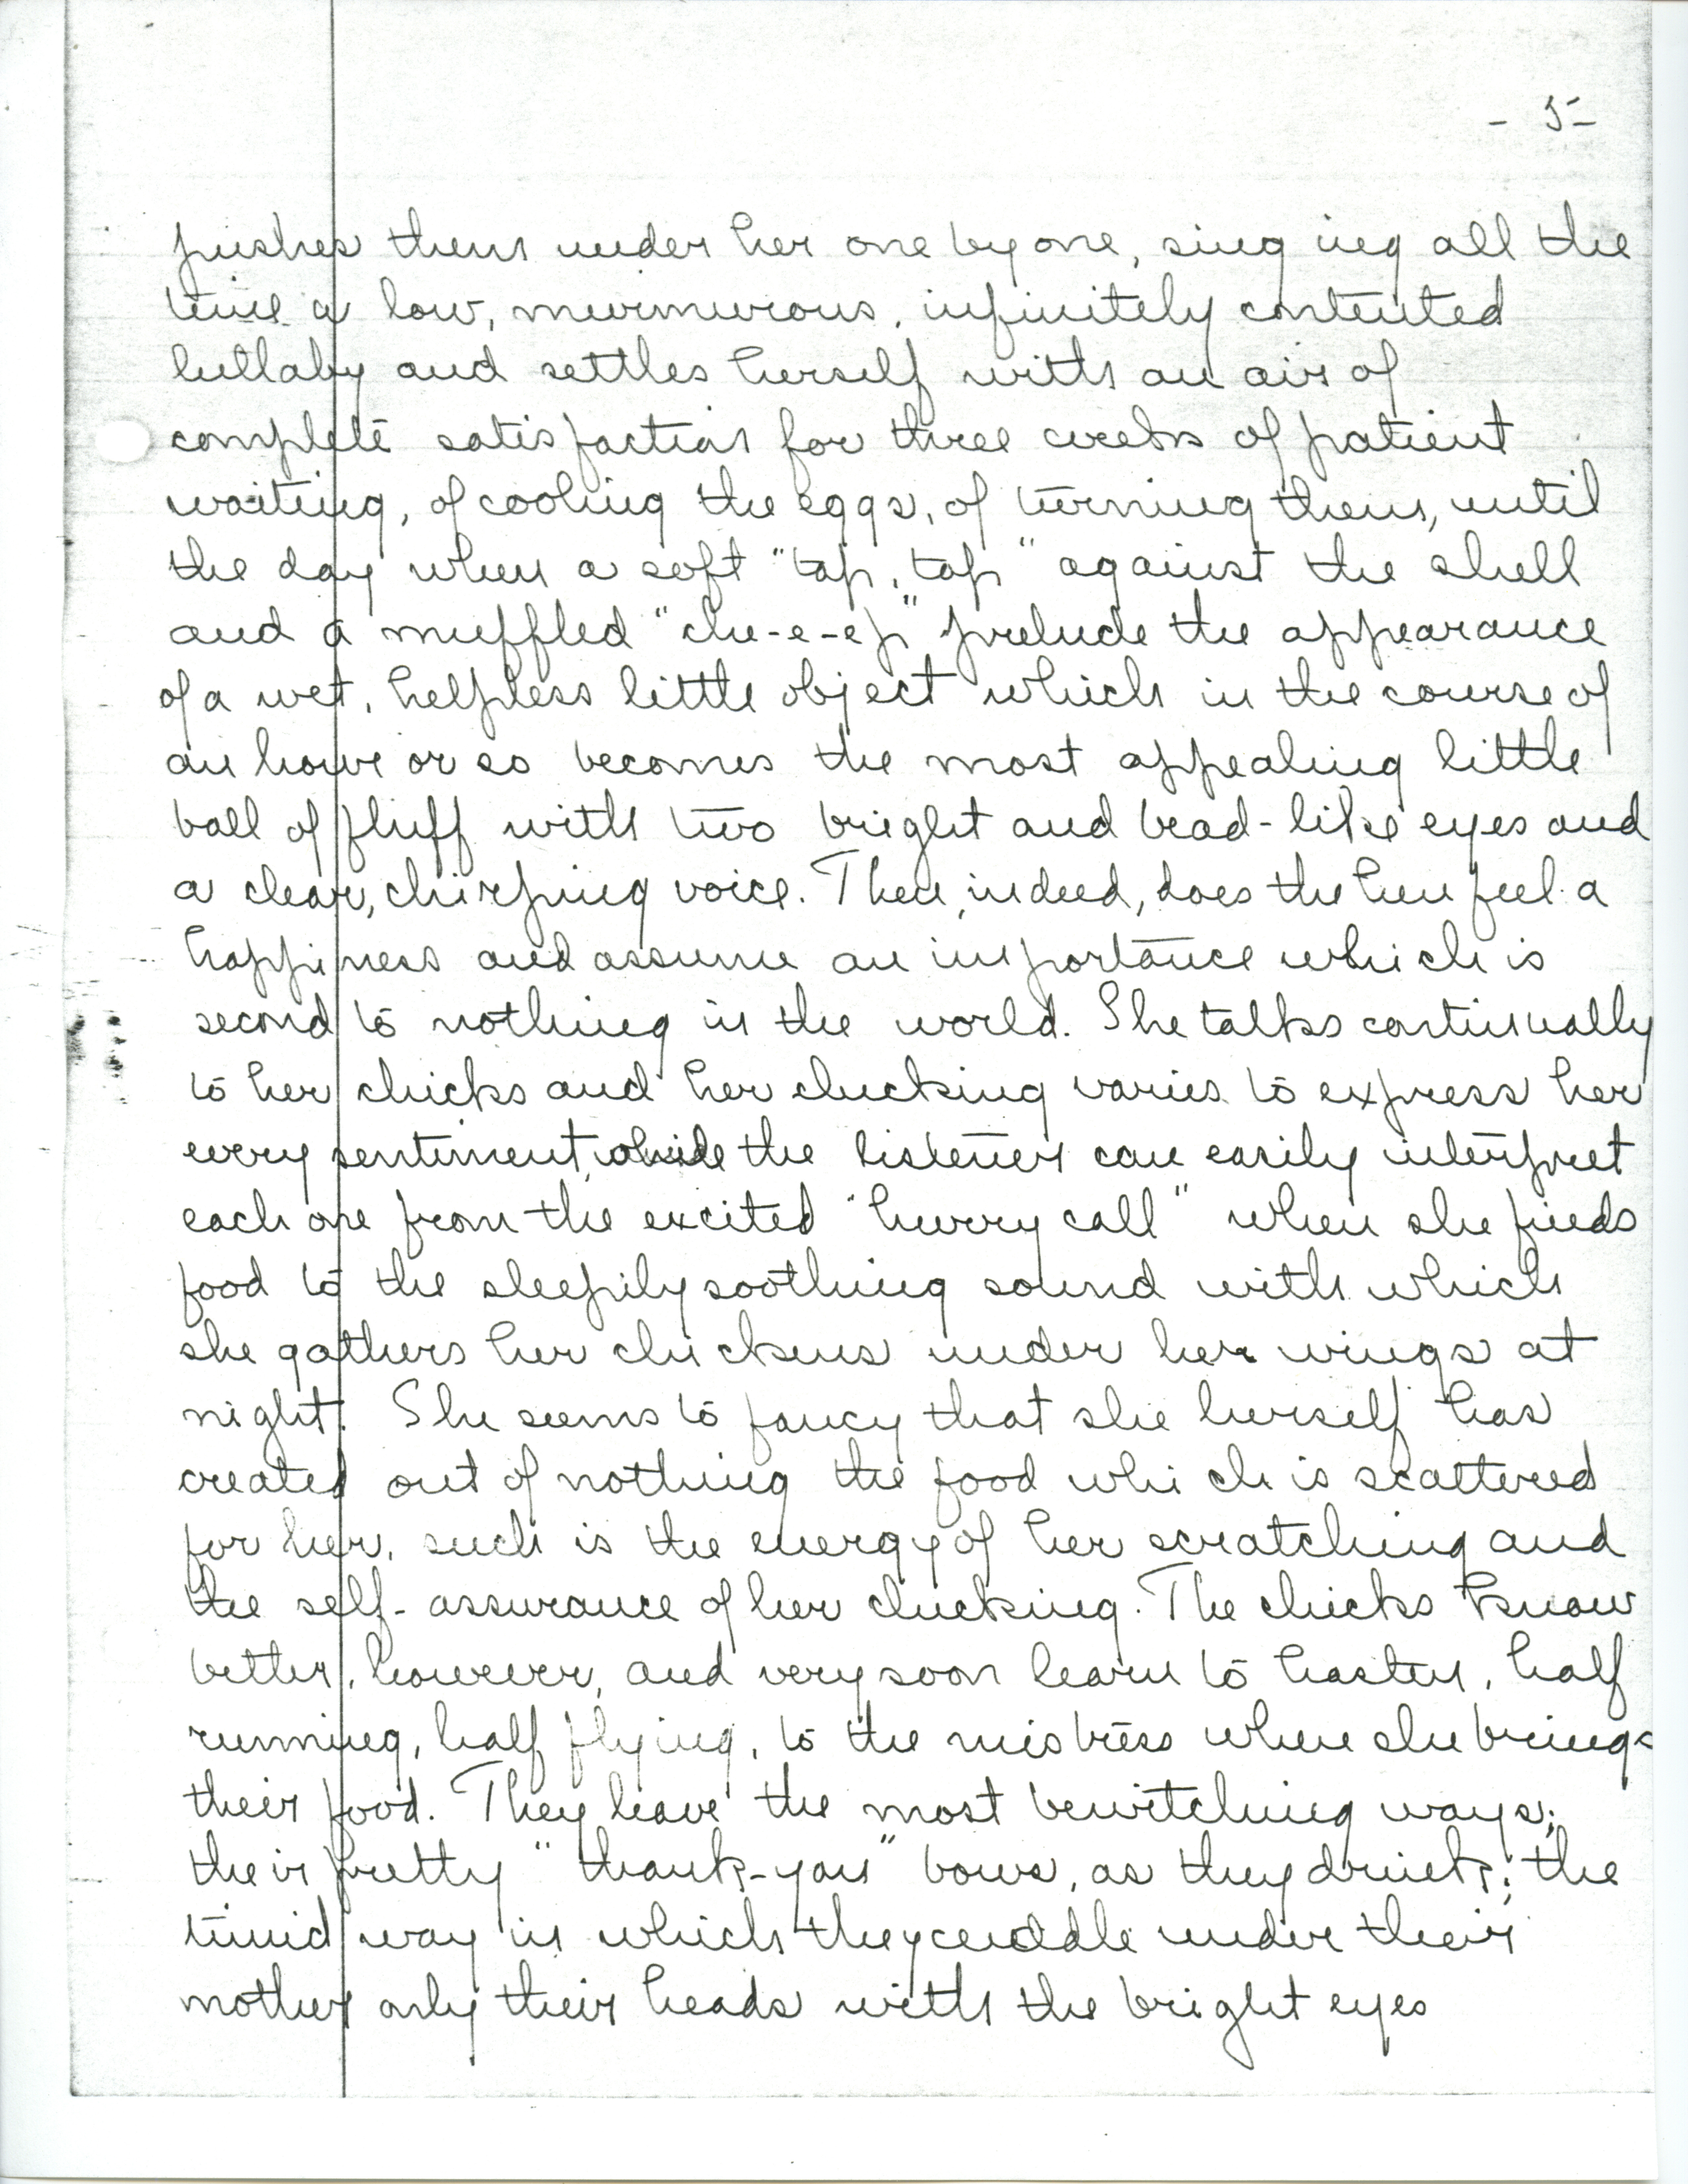 - 5 -
pushes them under her one by one, singing all the
time a low, murmurous, infinitely contented
lullaby and settles herself with an air of
complete satisfaction for three weeks of patient
waiting, of cooling the eggs, of turning them, until
the day when a soft "tap, tap" against the shell
and a muffled "che-e-ep" prelude the appearance
of a wet, helpless little object which in the course of
an hour or so becomes the most appealing little
ball of fluff with two bright and bead-like eyes and
a clear, chirping voice. Then, indeed, does the hen feel a
happiness and assume an importance which is
second to nothing in the world. She talks continually
to her chicks and her clucking varies to express her
every sentiment, while the listener can easily interpret
each one from the excited "hurry call" when she finds
food to the sleepily soothing sound with which
she gathers her chickens under her wings at
night. She seems to fancy that she herself has
created out of nothing the food which is scattered
for her, such is the energy of her scratching and
the self-assurance of her clucking. The chicks know
better, however, and very soon learn to hasten, half
running, half flying, to the mistress when she brings
their food. They have the most bewitching ways;
their pretty "thank-you" bows, as they drink; the
timid way in which they cuddle under their
mother only their heads with the bright eyes